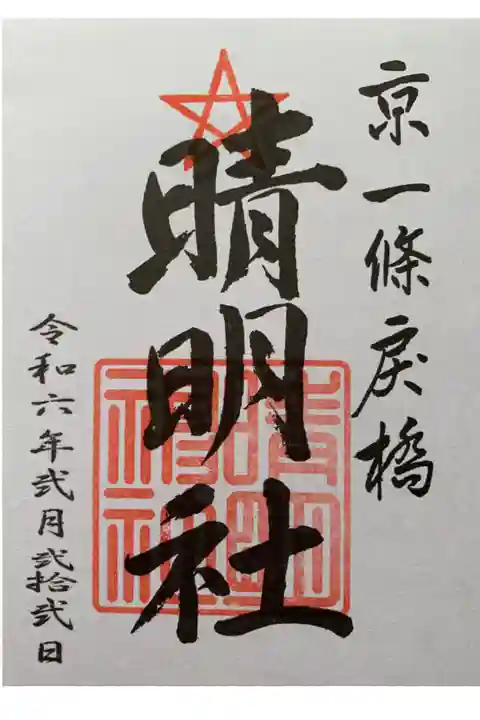 京一條戻橋
晴明社
晴明神社
令和六年弐月弐拾弐日